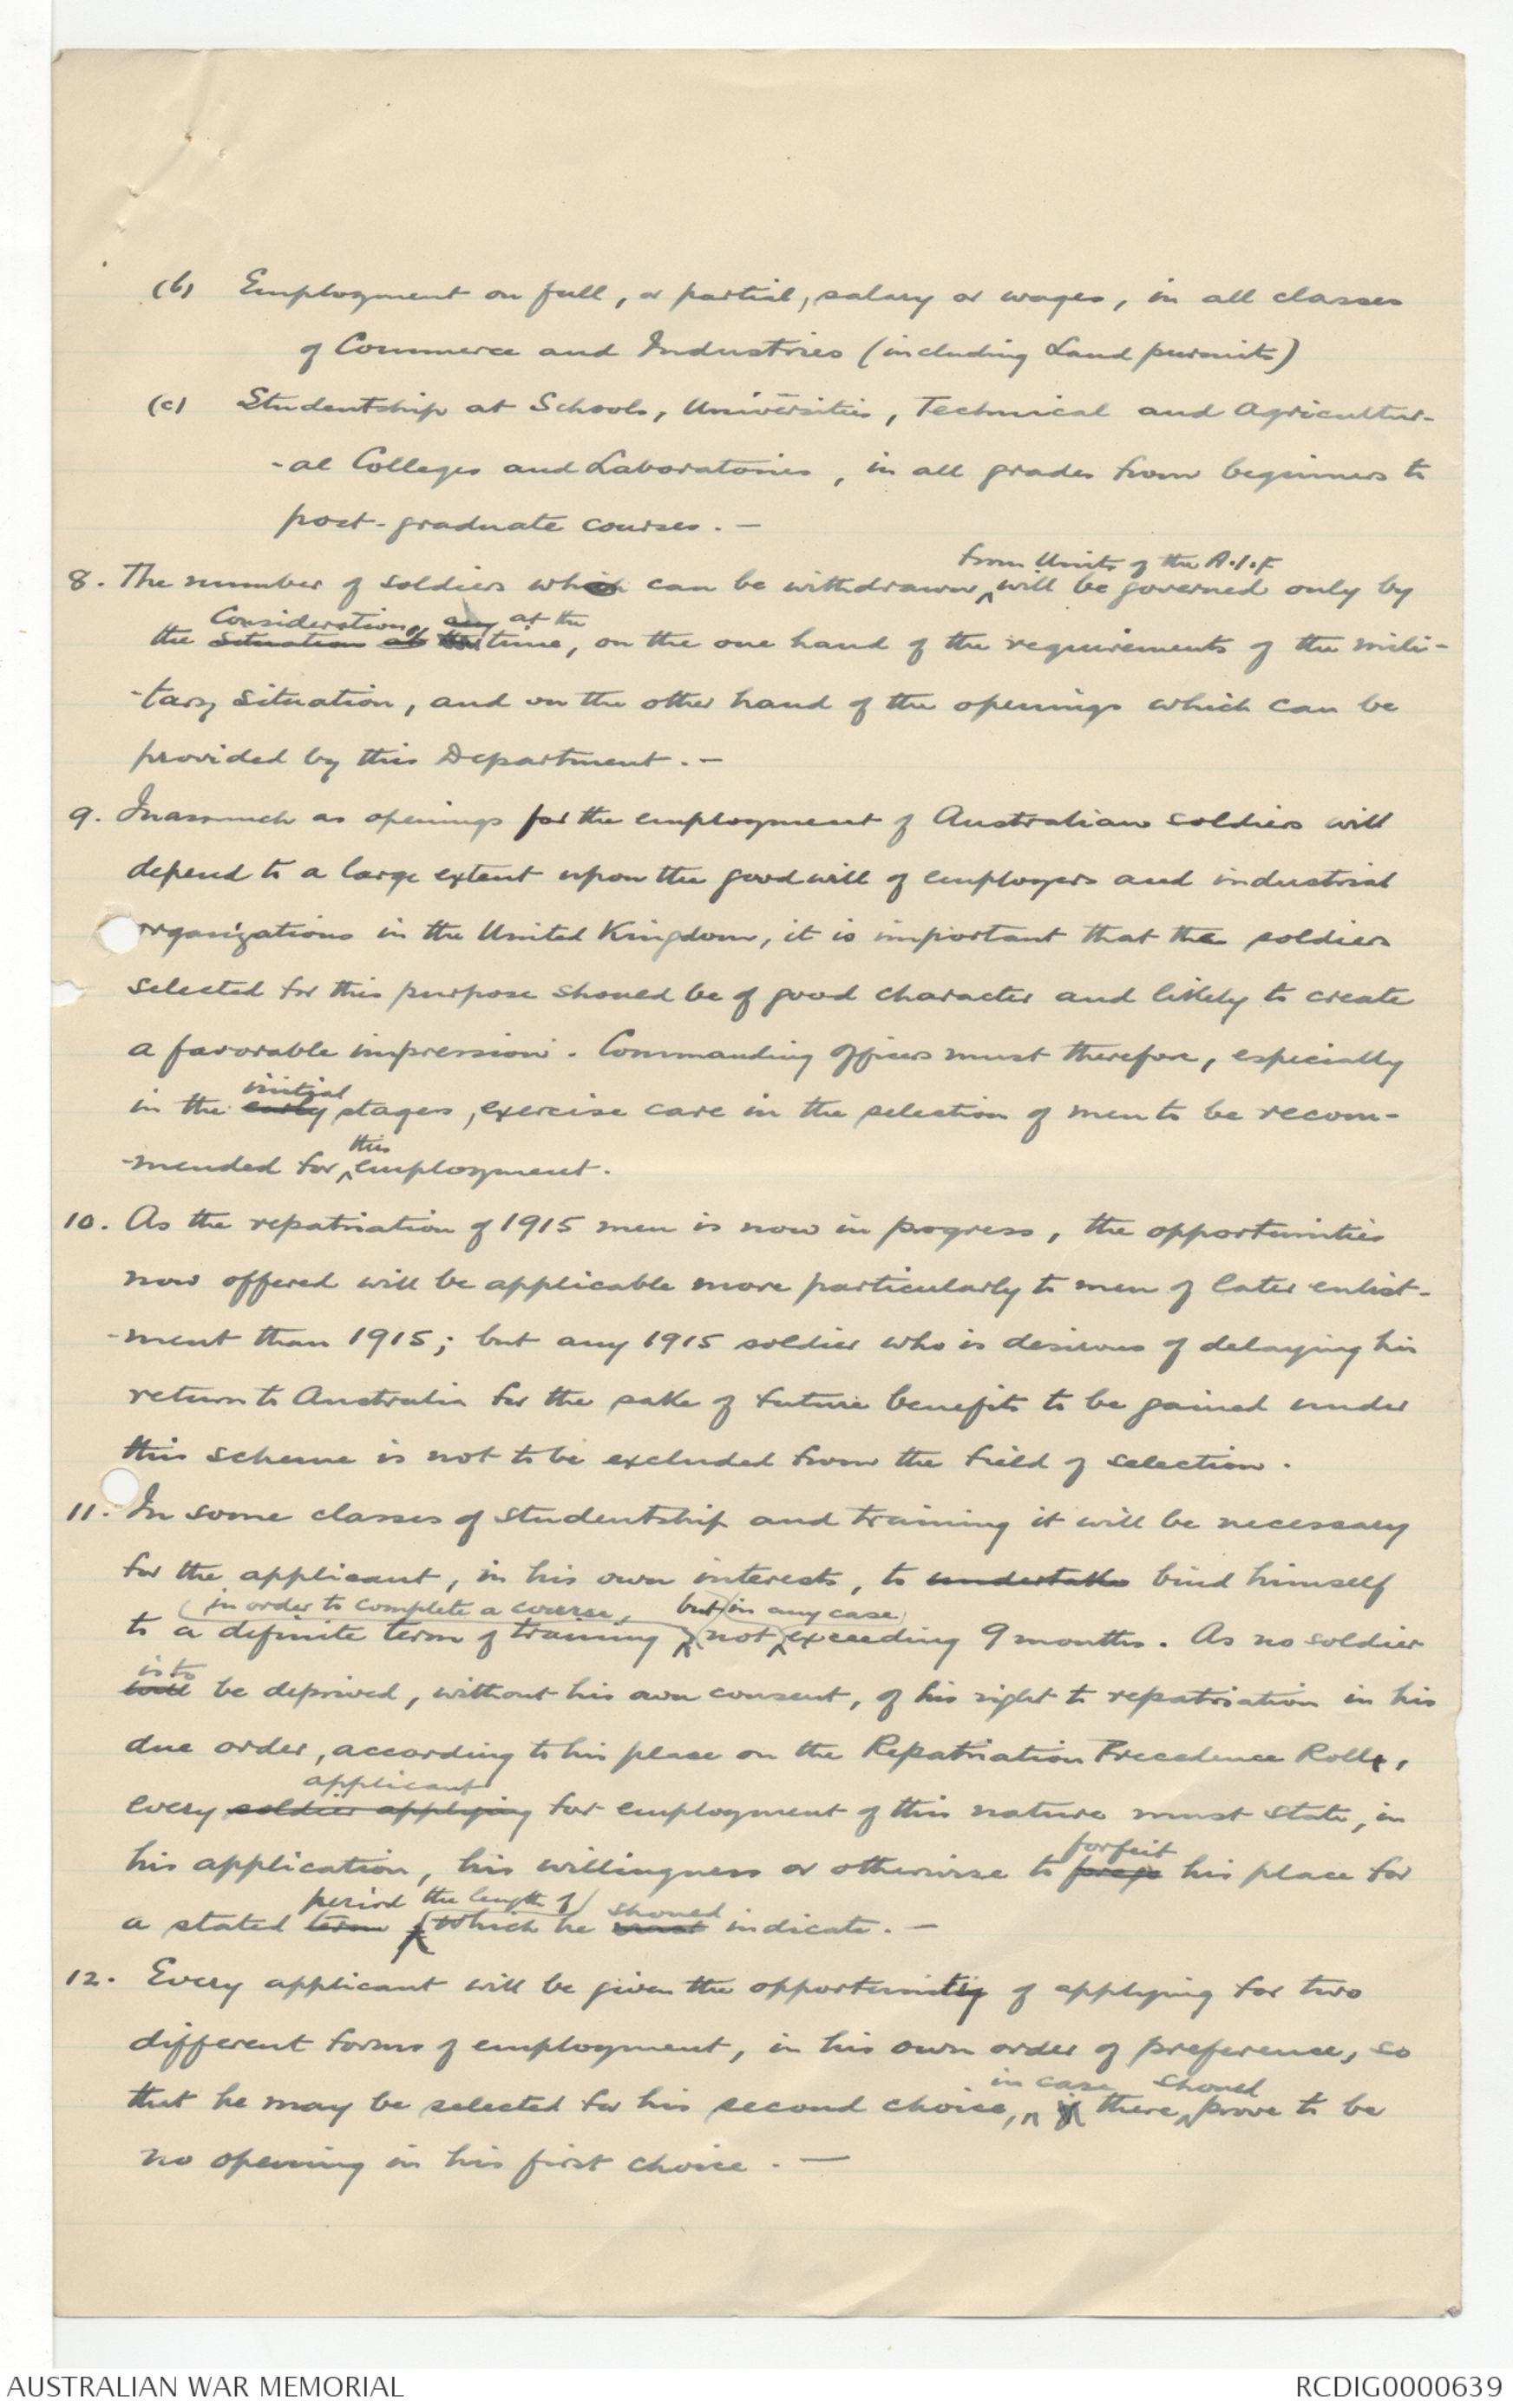 (b) Employment on full, or partial, salary or wages, in all classes
of Commerce and Industries (including Land pursuits)
(c) Studentship at Schools, Universities, Technical and Agricultur-
-al Colleges and Laboratories, in all grades from beginners to
post-graduate courses. —
from Units of the A.I.F.
8. The number of soldiers which can be withdrawn will be governed only by
Considerations, any at the
the situation at the time, on the one hand of the requirements of the mili-
-tary situation, and on the other hand of the openings which can be
provided by this Department. —
9. Inasmuch as openings for the employment of Australian soldiers will
depend to a large extent upon the goodwill of employers and industrial
organizations in the United Kingdom, it is important that the soldiers
selected for this purpose should be of good character and likely to create
a favorable impression. Commanding Officers must therefore, especially
initial
in the early stages, exercise care in the selection of men to be recom-
this
-mended for employment.
10. As the repatriation of 1915 men is now in progress, the opportunities
now offered will be applicable more particularly to men of later enlist-
-ment than 1915; but any 1915 soldier who is desirous of delaying his
return to Australia for the sake of future benefits to be gained under
this scheme is not to be excluded from the field of selection.
11. In some classes of studentship and training it will be necessary
for the applicant, in his own interests, to undertake bind himself
in order to complete a course, but in any case
to a definite term of training not exceeding 9 months. As no soldier
is to
will be deprived, without his own consent, of his right to repatriation in his
due order, according to his place on the Repatriation Precedence Roll,
applicant
every soldier applying for employment of this nature must state, in
forfeit
his application, his willingness or otherwise to forego his place for
period the length of should
a stated term which he must indicate. —
12. Every applicant will be given the opportunity of applying for two
different forms of employment, in his own order of preference, so
in case should
that he may be selected for his second choice, if there prove to be
no opening in his first choice. —
AUSTRALIAN WAR MEMORIAL
RCDIG0000639